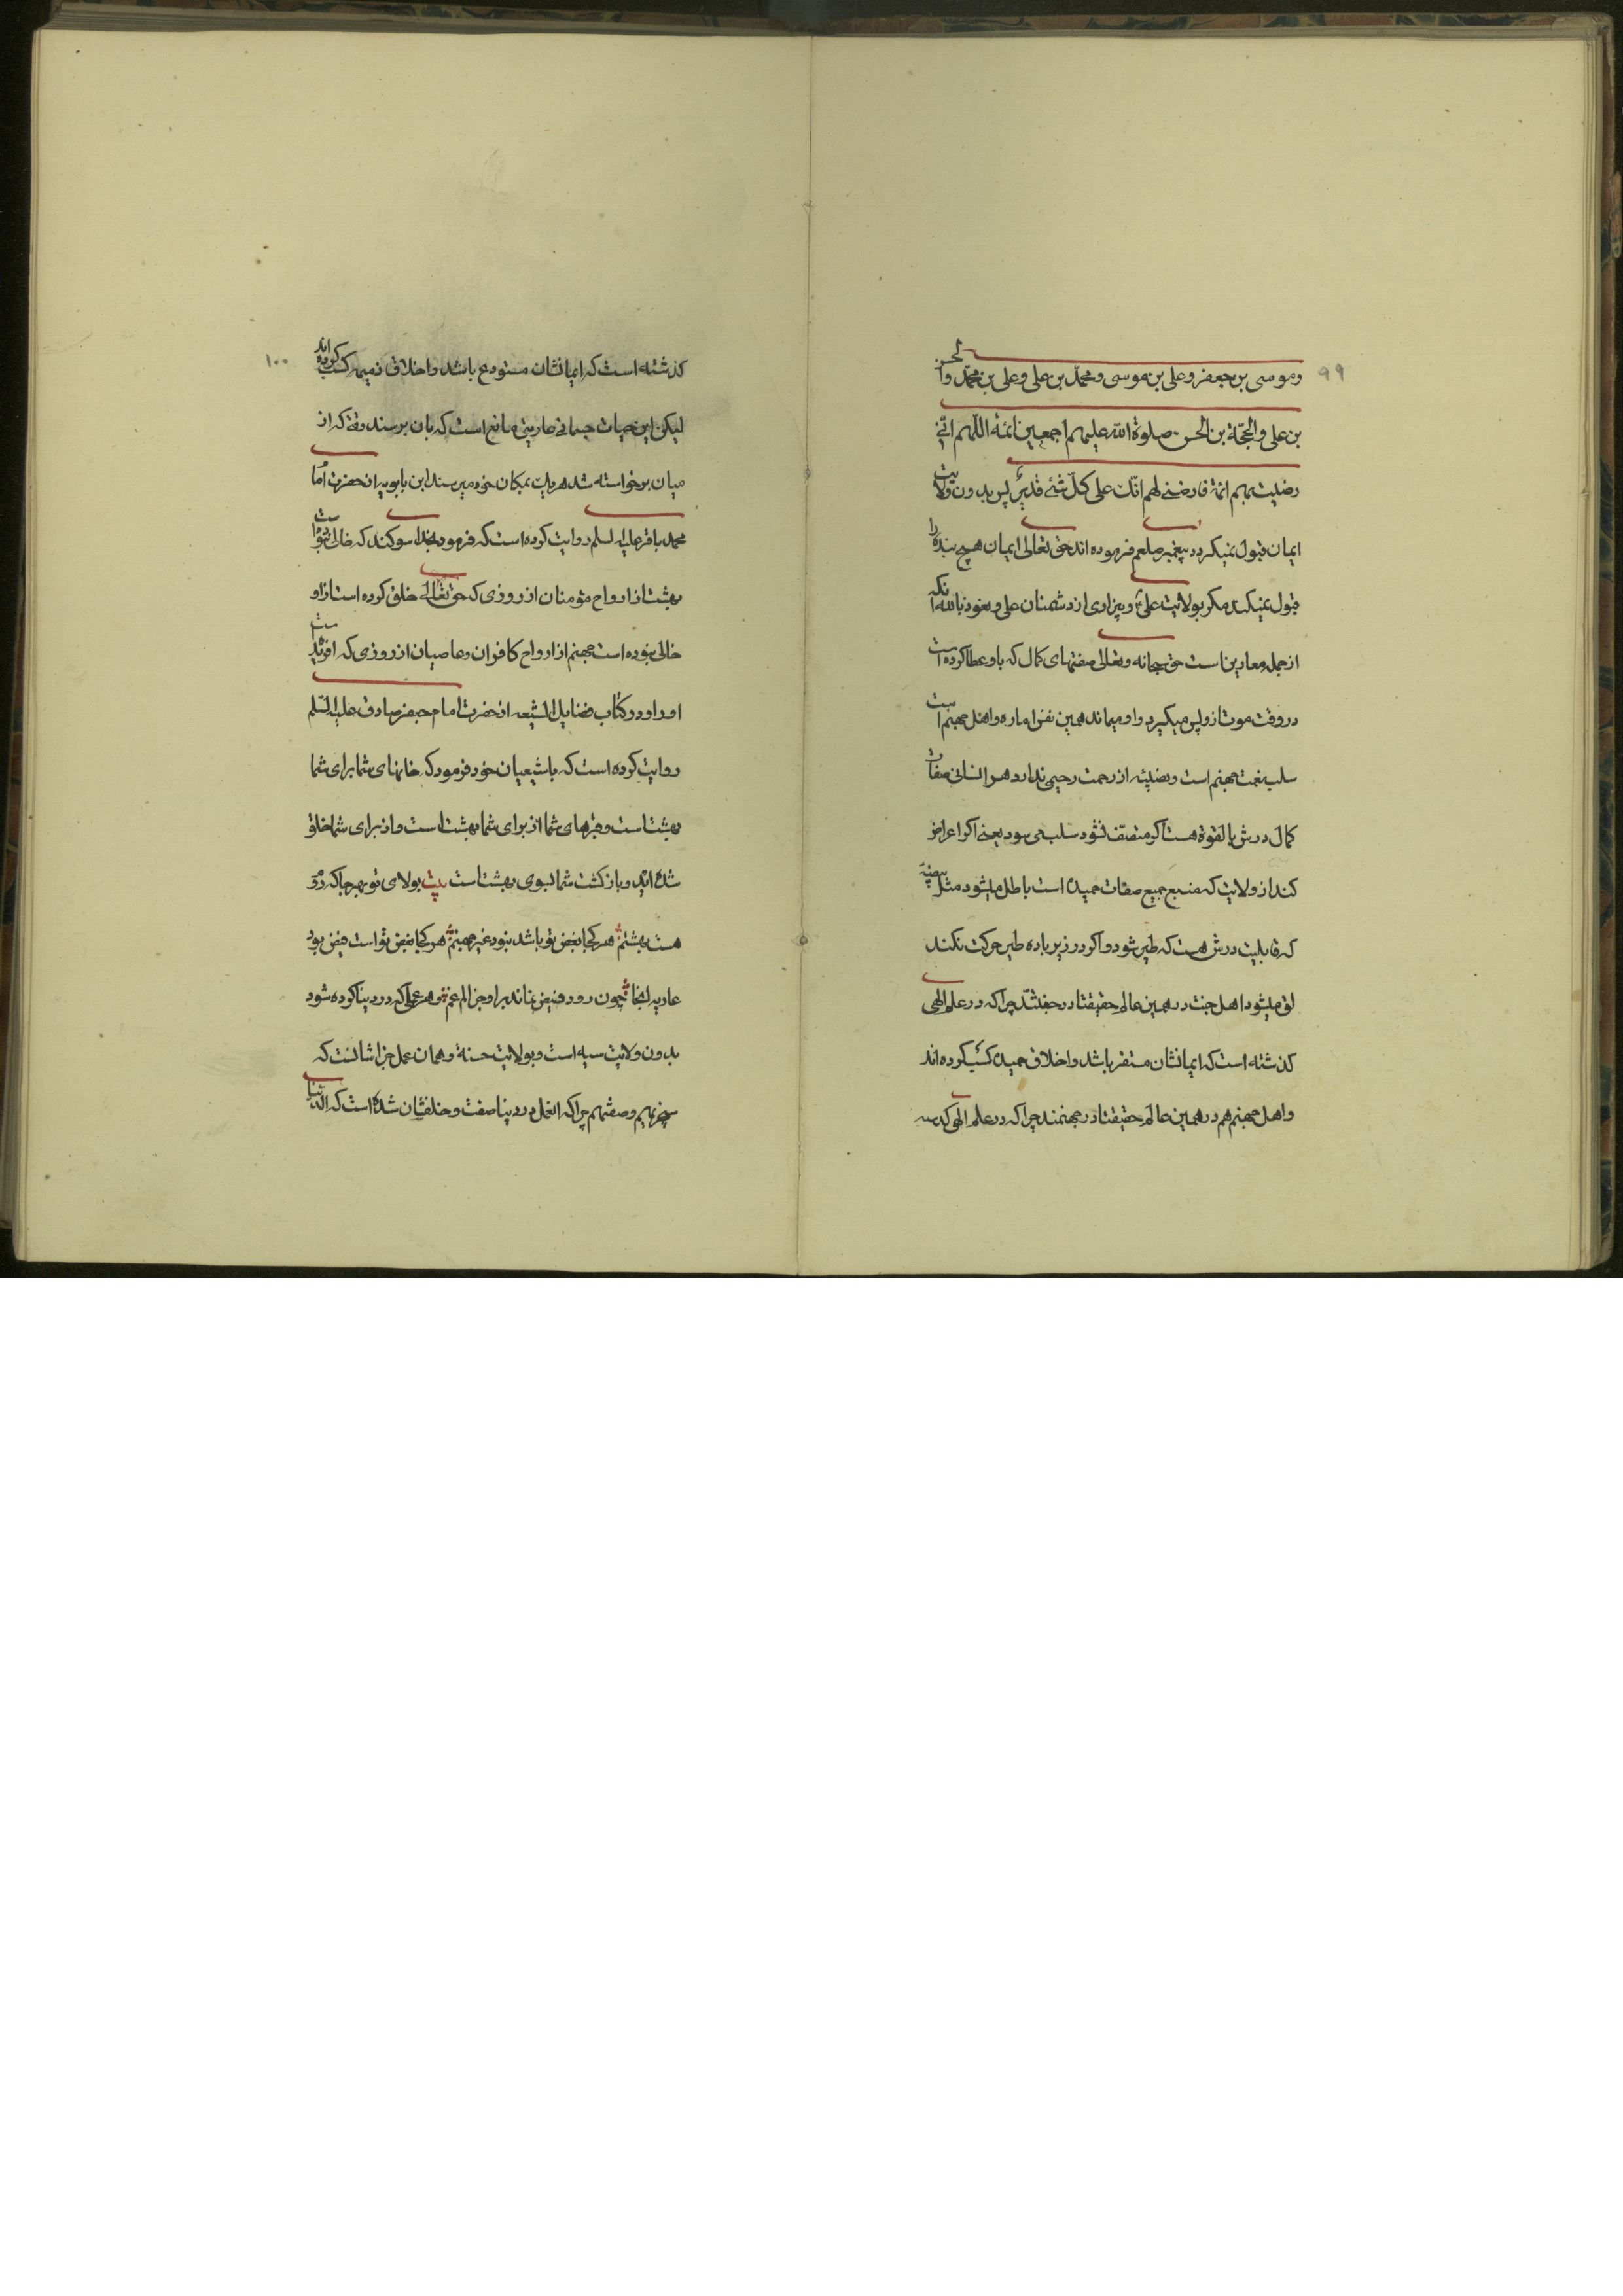 ۹۹
وموسی بن جعفر وعلی بن موسی ومحمّد بن علی وعلی بن محمّد والحسن
بن علی والحجّة بن الحسن صلوة الله علیهم اجمعین ائمة اللّهم انّی
رضیت بهم ائمة فارضنی لهم انّك علی کلّ شئ قدیر پس بدون ولایت
ایمان قبول نمیکردد پیغمبر صلعم فرموده اند حق تعالی ایمان هیچ بنده را
قبول نمیکند مکر بولایت علی و بیزاری از دشمنان علی و نعوذ بالله انکه
از جمله معارین است حق سبحانه وتعالی صفتهای کمال که باو عطا کرده است
در وقت موت ازو پس میکیرد و او میماند همین نفس اماره و اهل جهنم است
سلب نعمت جهنم است و نصیبه از رحمت رحیمی ندارد هر انسانی صفات
کمال درش بالقوة هست اکر متصّف نشود سلب می سود یعنے اکر اعراض
کند از ولایت که منبع جمیع صفات حمیده است باطل میشود مثل بیضهٔ
که قابلیت درش هست که طیر شود و اکر در زیر باده طیر حرکت نکند
لق میشود اهل جنت در همین عالم حقیقتا در جنتند چرا که در علم الهی
کذشته است که ایمانشان مستقر باشد و اخلاق حمیده کسب کرده اند
و اهل جهنم هم در همین عالم حقیقتا در جهنمند چرا که در علم الهی
۱۰۰
کذشته است که ایمانشان مستودع باشد و اخلاق ذمیمه کسب کرده اند
لیکن این حیات جسمانی عاریتی مانع است که بان برسند وقتے که از
میان برخواسته شد هر یك بمکان خود میرسند ابن بابویه از حضرت امام
محمد باقر علیه السلم روایت کرده است که فرمود بخدا سوکند که خالی نبوده است
بهشت از ارواح مؤمنان از روزی که حق تعالی خلق کرده است او
خالی نبوده است جهنم از ارواح کافران و عاصیان از روزی که افریده است
او را و در کتاب فضایل الشیعه از حضرت امام جعفر صادق علیه السّلم
روایت کرده است که باشیعیان خود فرمود که خانهای شما برای شما
بهشت است و قبرهای شما از برای شما بهشت است و از برای شما خلق
شده اید و بازکشت شما بسوی بهشت است بیت بولای تو بهر جا که روم
هست بهشتم هر کجا بغض تو باشد نبود غیر جهنم هر کجا بغض تو است فیض بود
عاریه انجا چون رود فیض نماند بر او جز الم غم و هر عملی که در دینا کرده شود
بدون ولایت سیه است و بولایت حسنة و همان عمل جزا شانست که
سیجزیهم وصفهم چرا که انعمل در دینا صفت و خلقشان شده است که الدّنیا